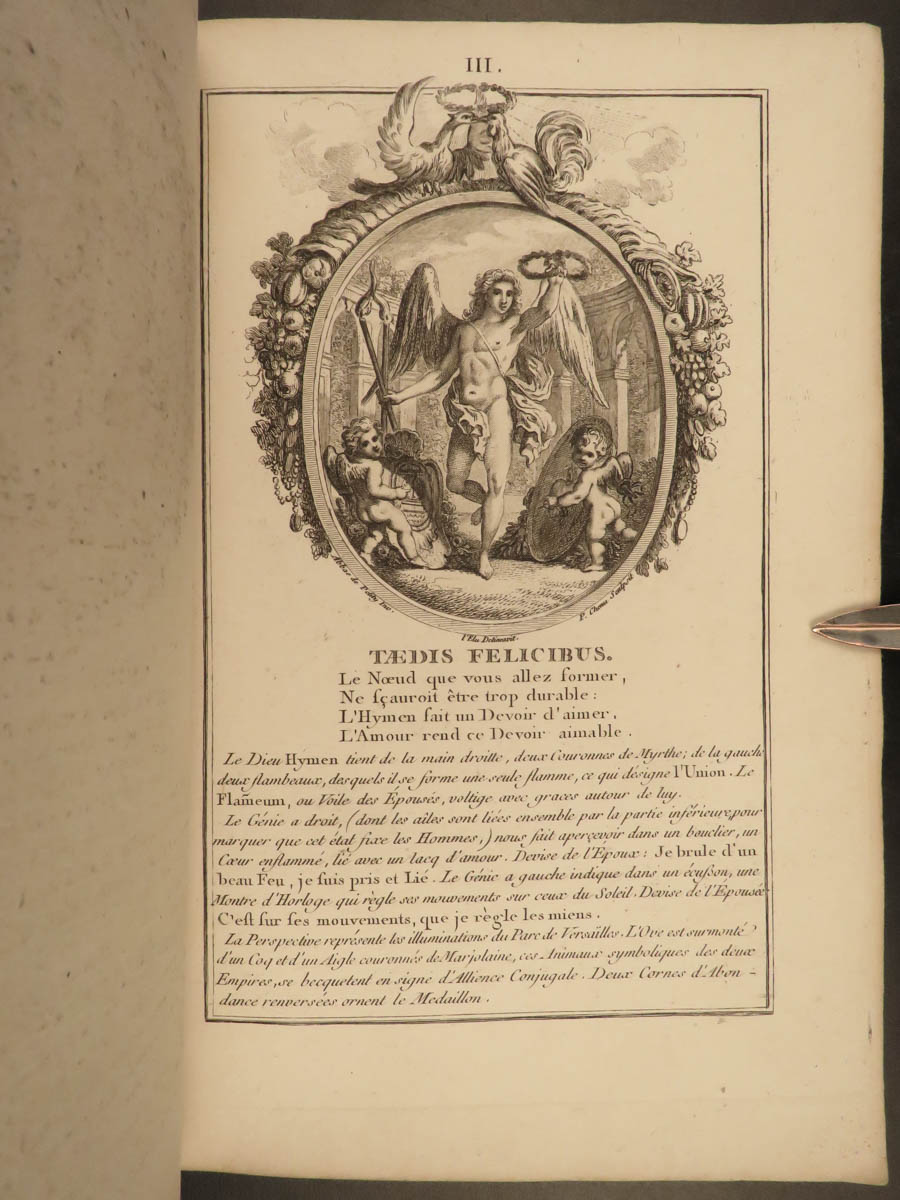 III.
Abbas de Petity Inv.
l'Elu Delineavit.
P. Chenu Sculpsit
TÆDIS FELICIBUS.
Le Nœud que vous allez former,
Ne sçauroit être trop durable :
L'Hymen fait un Devoir d'aimer,
L'Amour rend ce Devoir aimable .
Le Dieu Hymen tient de la main droitte, deux Couronnes de Myrthe; de la gauche
deux flambeaux, desquels il se forme une seule flamme, ce qui désigne l'Union . Le
Flam̃eum, ou Voile des Épousés, voltige avec graces autour de luy.
Le Génie a droit, (dont les ailes sont liées ensemble par la partie inférieure, pour
marquer que cet état fixe les Hommes,) nous fait aperçevoir dans un bouclier, un
Cœur enflammé, lié avec un lacq d'amour . Devise de l'Époux : Je brule d'un
beau Feu, je suis pris et Lié . Le Génie a gauche indique dans un écusson, une
Montre d'Horloge qui règle ses mouvements sur ceux du Soleil . Devise de l'Épousée
C'est sur ses mouvements, que je règle les miens .
La Perspective représente les illuminations du Parc de Versailles . L'Ove est surmonté
d'un Coq et d'un Aigle couronnés de Marjolaine, ces Animaux symboliques des deux
Empires, se becquetent en signe d'Allience Conjugale . Deux Cornes d'Abon -
dance renversées ornent le Medaillon .